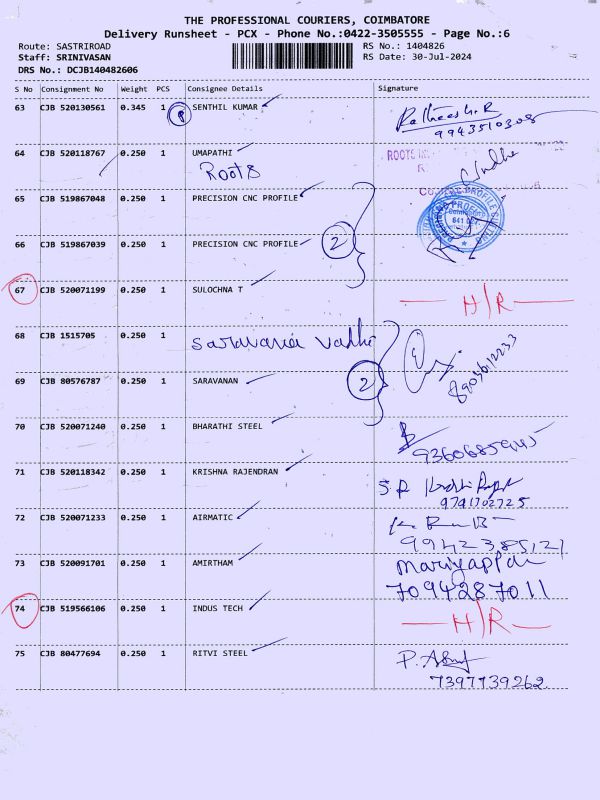 THE PROFESSIONAL COURIERS, COIMBATORE
Delivery Runsheet - PCX - Phone No.:0422-3505555 - Page No.:6
Route: SASTRIROAD
RS No.: 1404826
Staff: SRINIVASAN
RS Date: 30-Jul-2024
DRS No.: DCJB140482606
S No Consignment No Weight PCS Consignee Details Signature
63 CJB 520130561 0.345 1 SENTHIL KUMAR
9943510308
64 CJB 520118767 0.250 1 UMAPATHI
Roots
ROOTS
65 CJB 519867048 0.250 1 PRECISION CNC PROFILE
66 CJB 519867039 0.250 1 PRECISION CNC PROFILE
2
67 CJB 520071199 0.250 1 SULOCHNA T
H/R
68 CJB 1515705 0.250 1 Saravana
69 CJB 80576787 0.250 1 SARAVANAN
2
70 CJB 520071240 0.250 1 BHARATHI STEEL
71 CJB 520118342 0.250 1 KRISHNA RAJENDRAN
9791702725
72 CJB 520071233 0.250 1 AIRMATIC
9942385121
73 CJB 520091701 0.250 1 AMIRTHAM
Mariyappan
7094287011
74 CJB 519566106 0.250 1 INDUS TECH
H/R
75 CJB 80477694 0.250 1 RITVI STEEL
7397739262